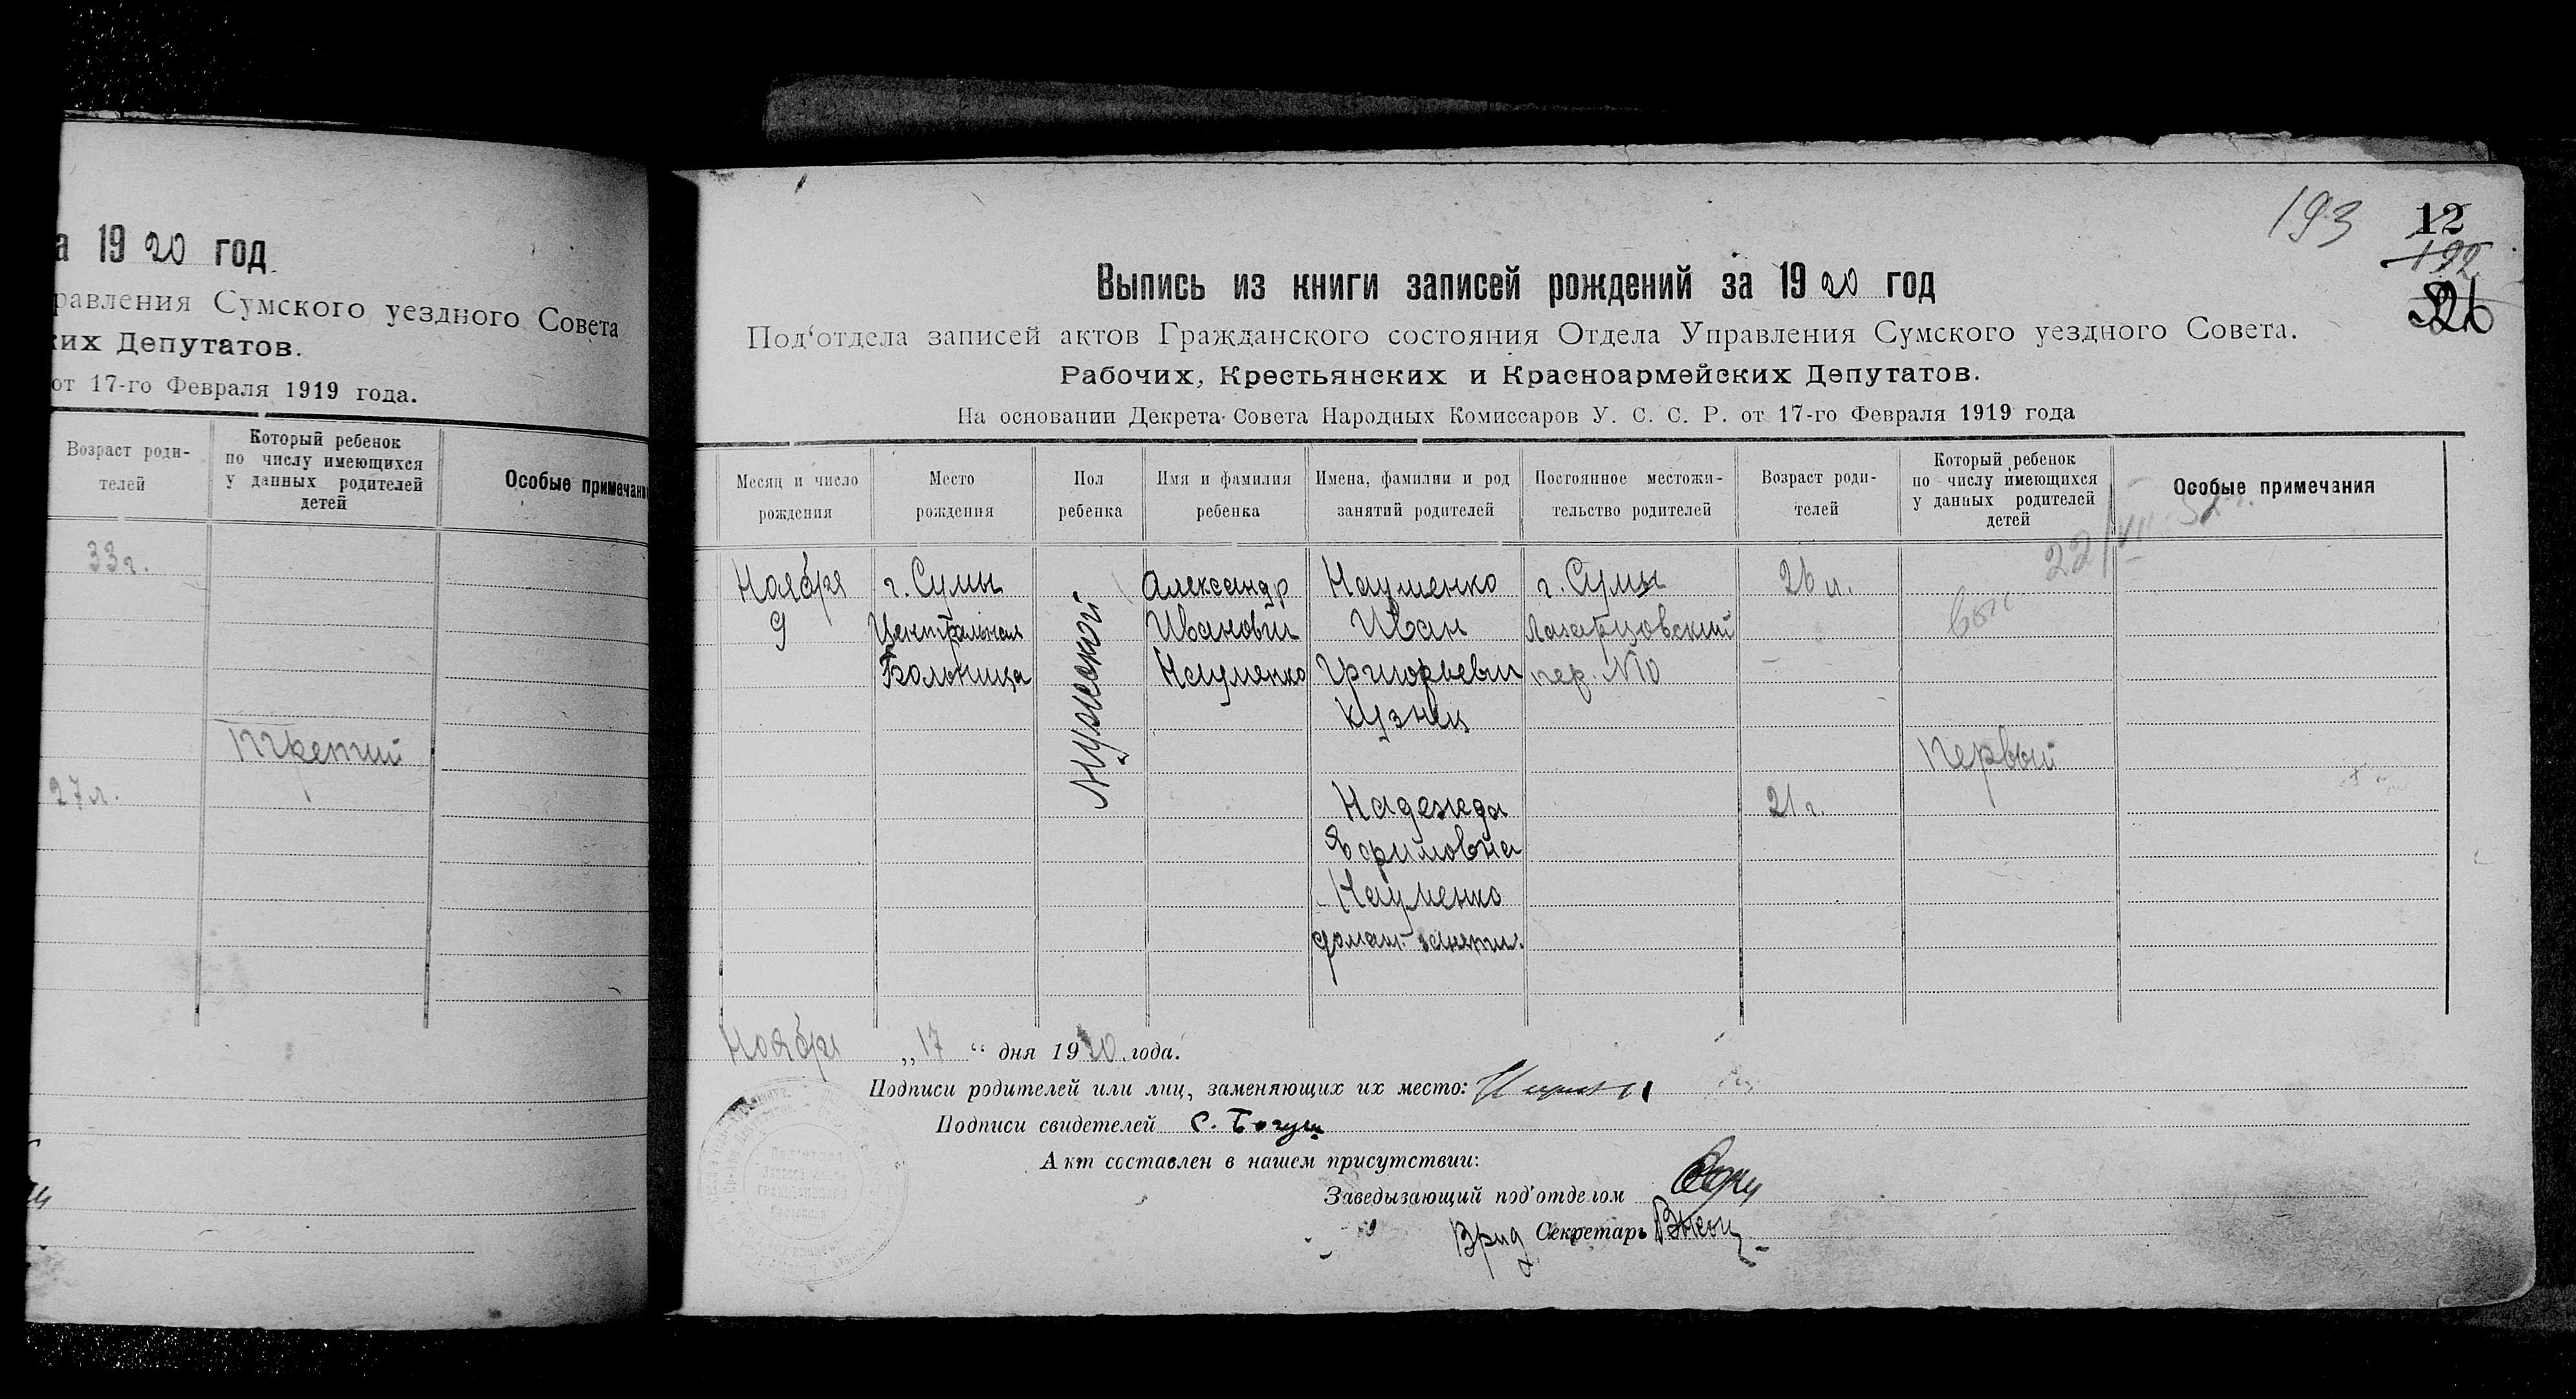 а 1920 год
равления Сумского уездного Совета
ких Депутатов.
от 17-го Февраля 1919 года.
Возраст роди-
телей
Который ребенок
по числу имеющихся
у данных родителей
детей
Особые примечани
33 г.
Третий
27 л.
193
12
192
Выпись из книги записей рождений за 1920 год
Под‘отдела записей актов Гражданского состояния Отдела Управления Сумского уездного Совета.
Рабочих, Крестьянских и Красноармейских Депутатов.
На основании Декрета Совета Народных Комиссаров У. С. С. Р. от 17-го Февраля 1919 года
Месяц и число
рождения
Место
рождения
Пол
ребенка
Имя и фамилия
ребенка
Имена, фамилии и род
занятий родителей
Постоянное местожи-
тельство родителей
Возраст роди-
телей
Который ребенок
по числу имеющихся
у данных родителей
детей
Особые примечания
Ноября
9
г. Сумы
Центральная
Больница
Мужской
Александр
Иванович
Науменко
Науменко
Иван
Григорьевич
кузнец
Надежда
Ефимовна
Науменко
домаш. занятия.
г. Сумы
пер. №10
26 л.
21 г.
Первый
Ноября „17“ дня 1920 года.
Подписи родителей или лиц, заменяющих их место:
Подписи свидетелей С. Богуш
Акт составлен в нашем присутствии:
Заведызающий под‘отделом
Врид Секретарь